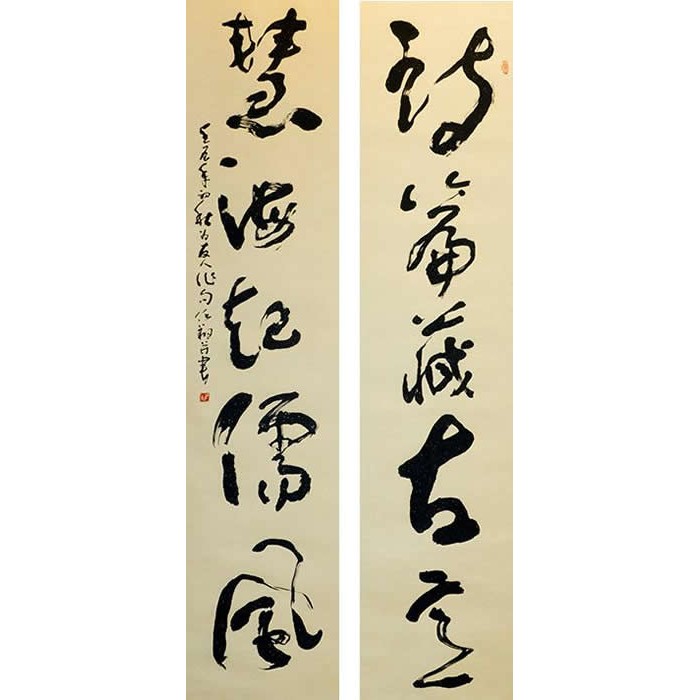 詩篇藏古意
慧海起儒風
年初秋为友人作句